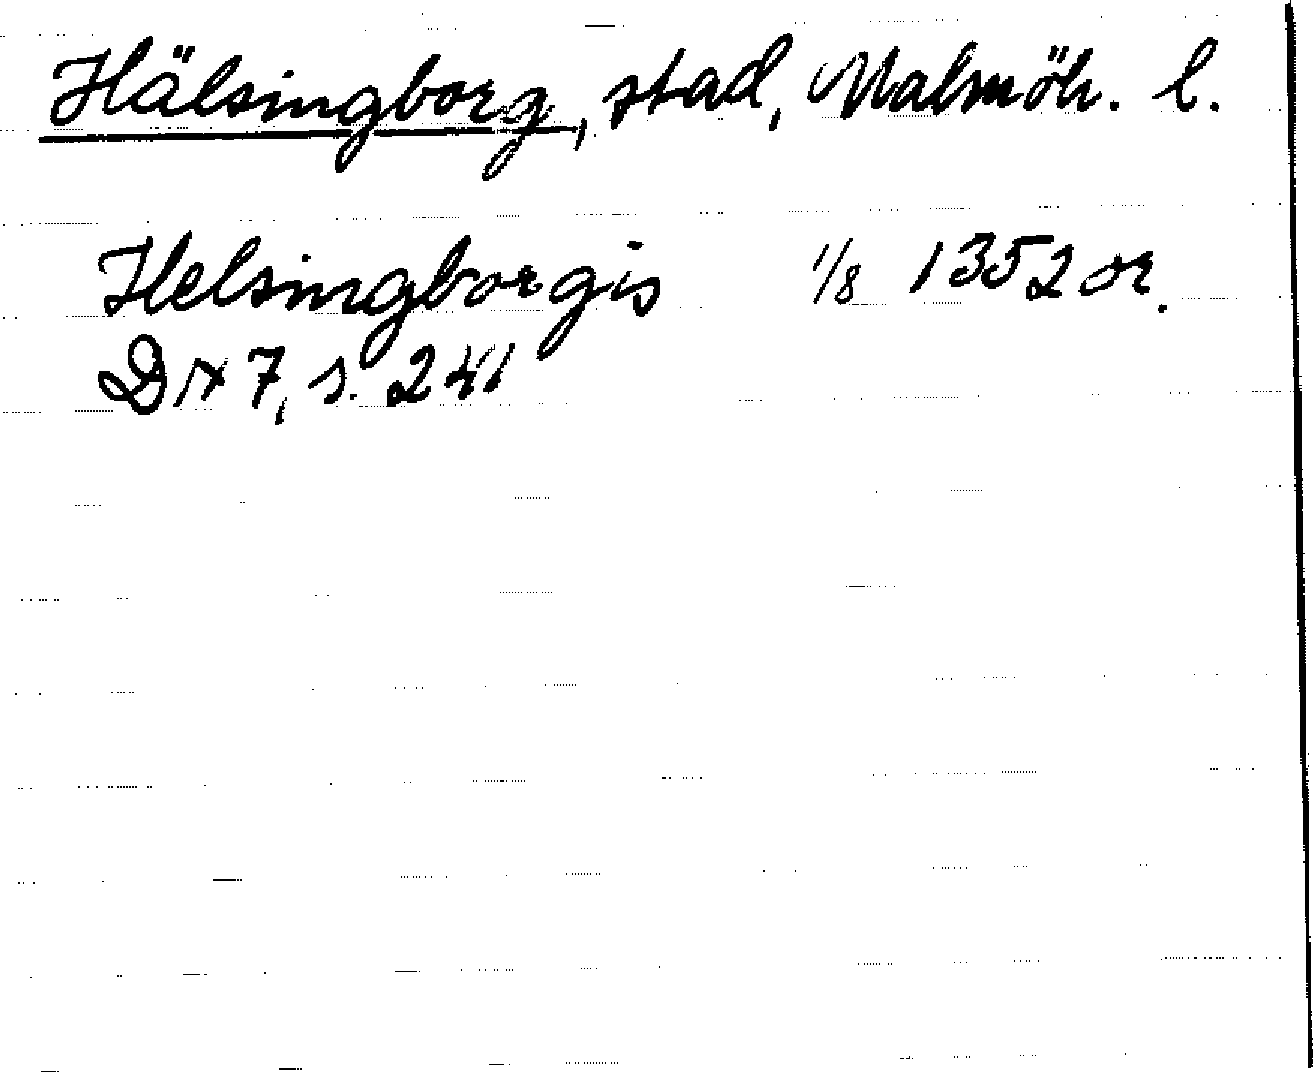 Hälsingborg, stad, Malmöh. l.
Helsingborgis 1/8 1352 or.
DN 7, s. 241